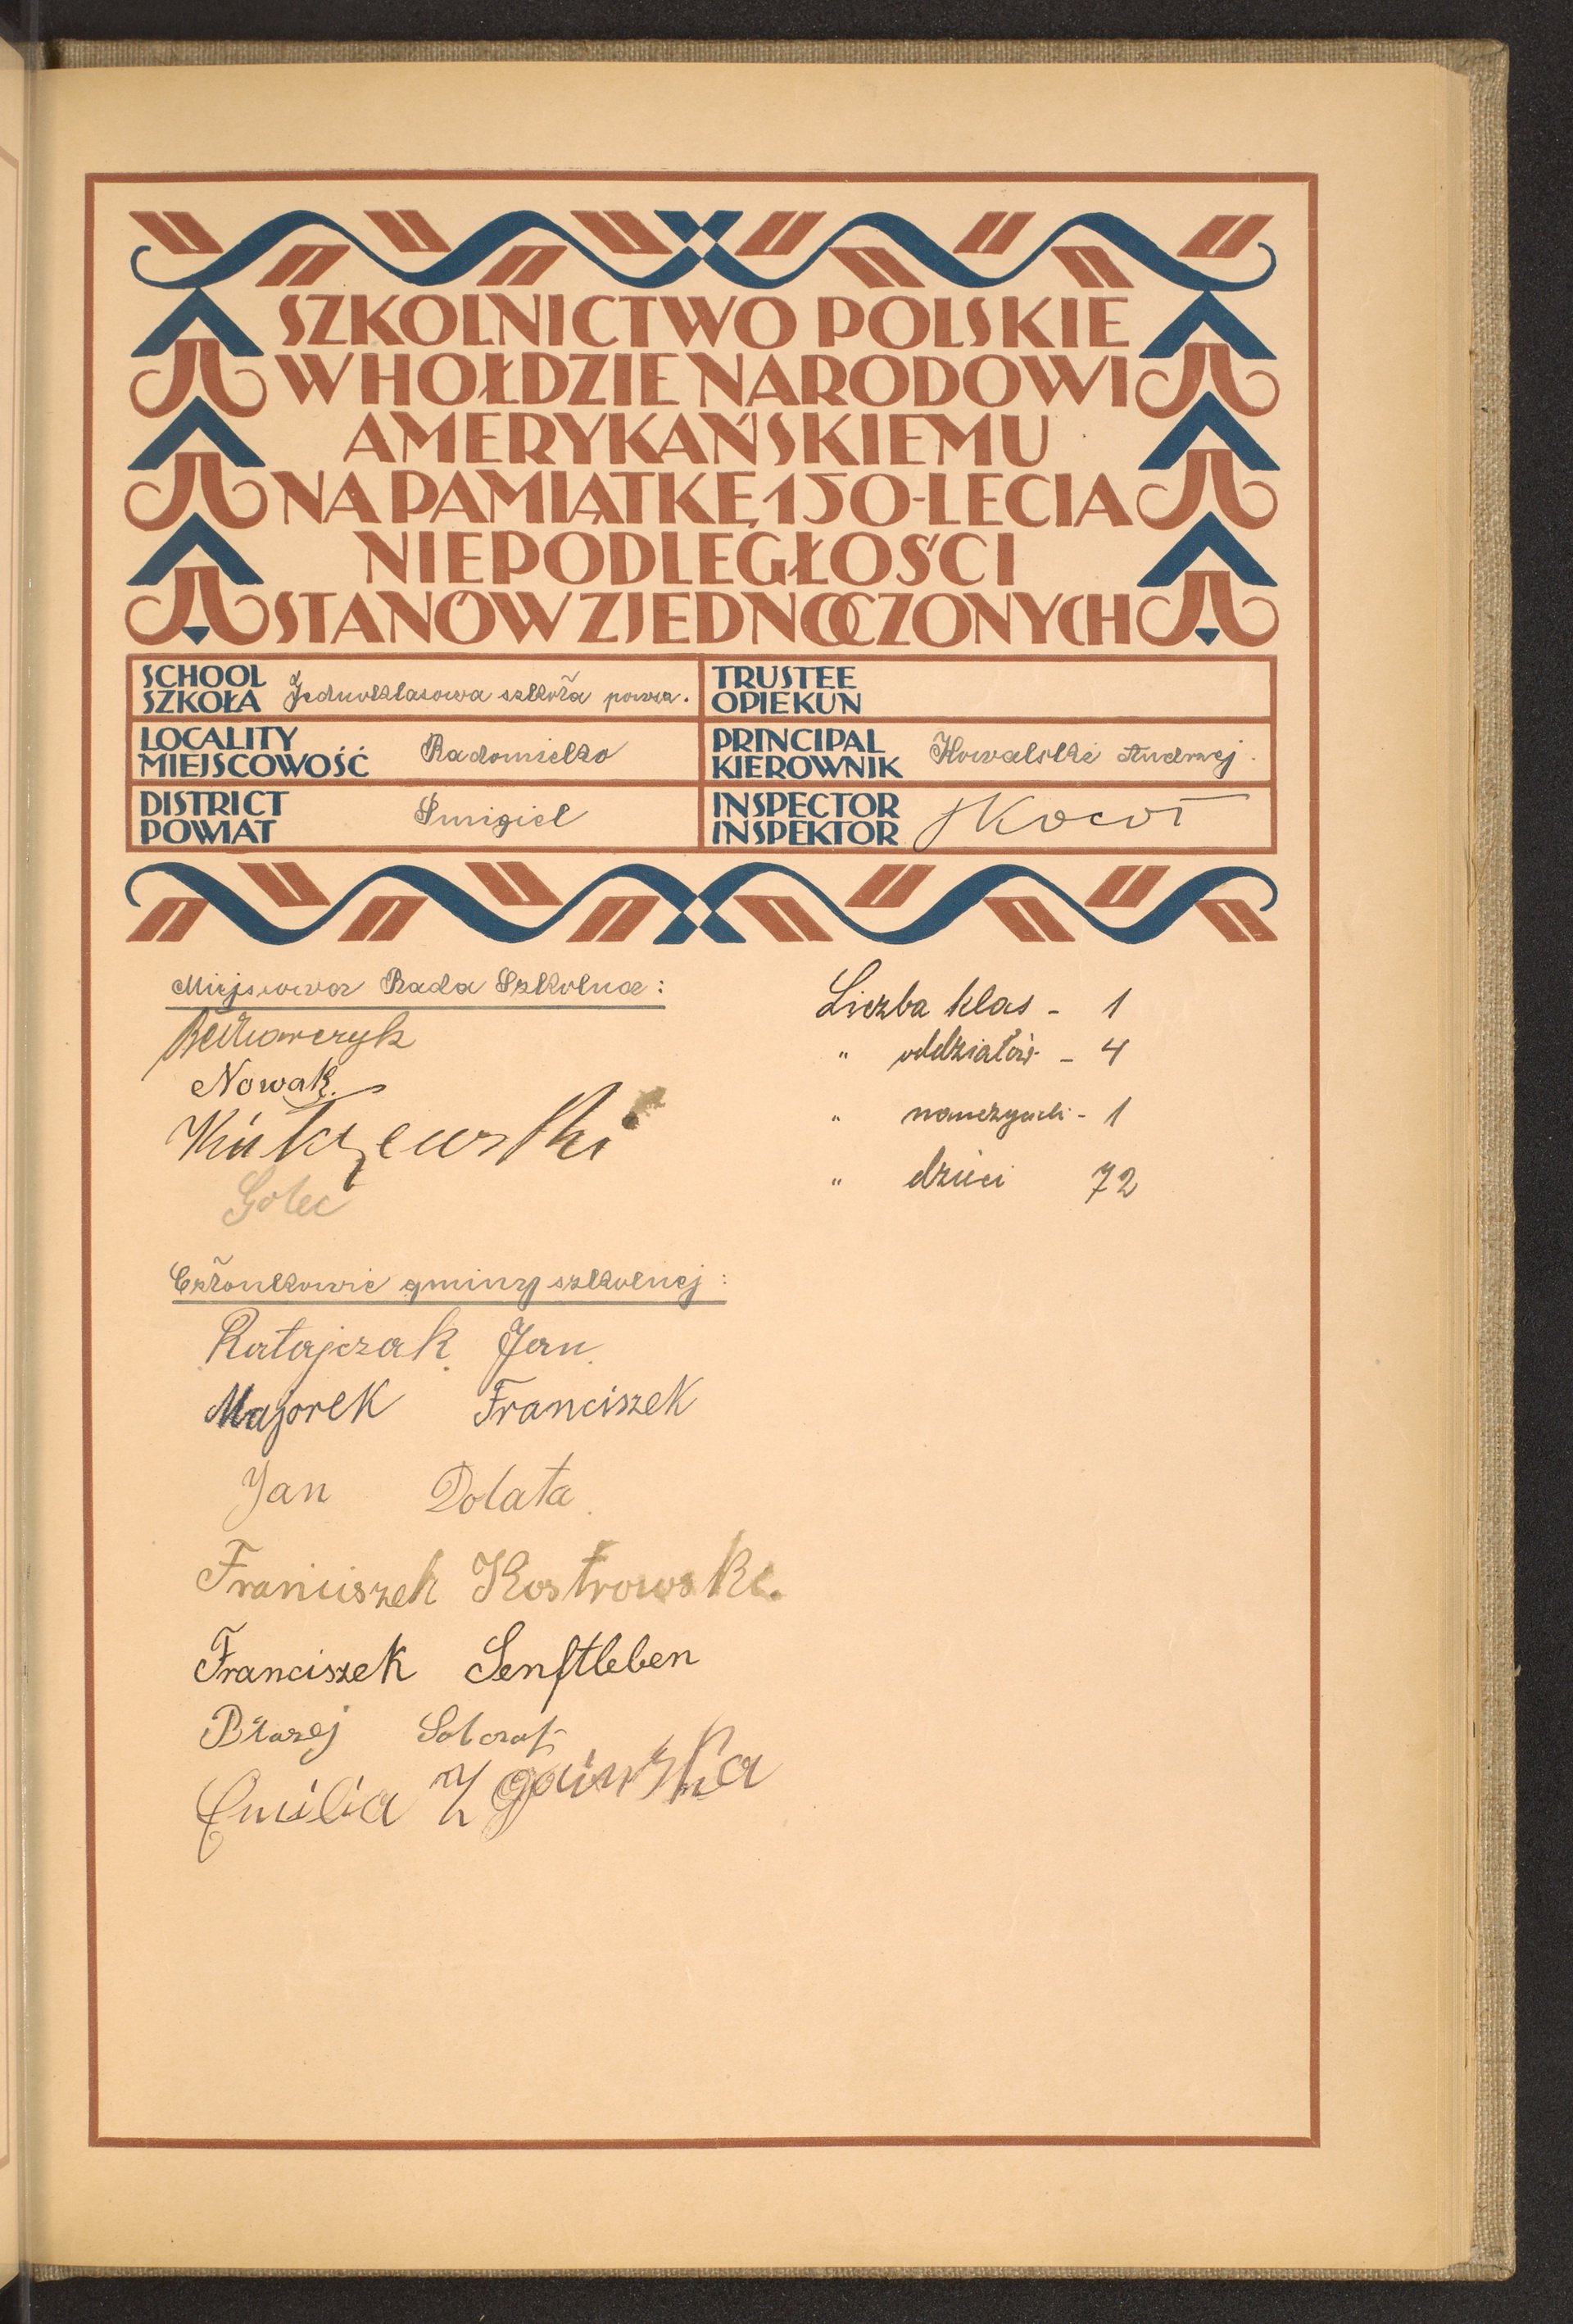 SZKOLNICTWO POLSKIE
W HOŁDZIE NARODOWI
AMERYKAŃSKIEMU
NA PAMIĄTKĘ 150-LECIA
NIEPODLEGŁOŚCI
STANÓW ZJEDNOCZONYCH
SCHOOL
SZKOŁA Jednoklasowa szkoła powsz.
TRUSTEE
OPIEKUN
LOCALITY
MIEJSCOWOŚĆ Radomicko
PRINCIPAL
KIEROWNIK Kowalski Andrzej.
DISTRICT
POWIAT Śmigiel
INSPECTOR
INSPEKTOR Kocoł
Miejscowa Rada Szkolna:
Nowak.
Golec
Liczba klas - 1
" oddziałów - 4
" nauczycieli - 1
" dzieci 72
Członkowie gminy szkolnej:
Ratajczak Jan
Majorek Franciszek
Jan Dolata
Franciszek Kostrowski.
Franciszek Senftleben
Błażej
Emilia